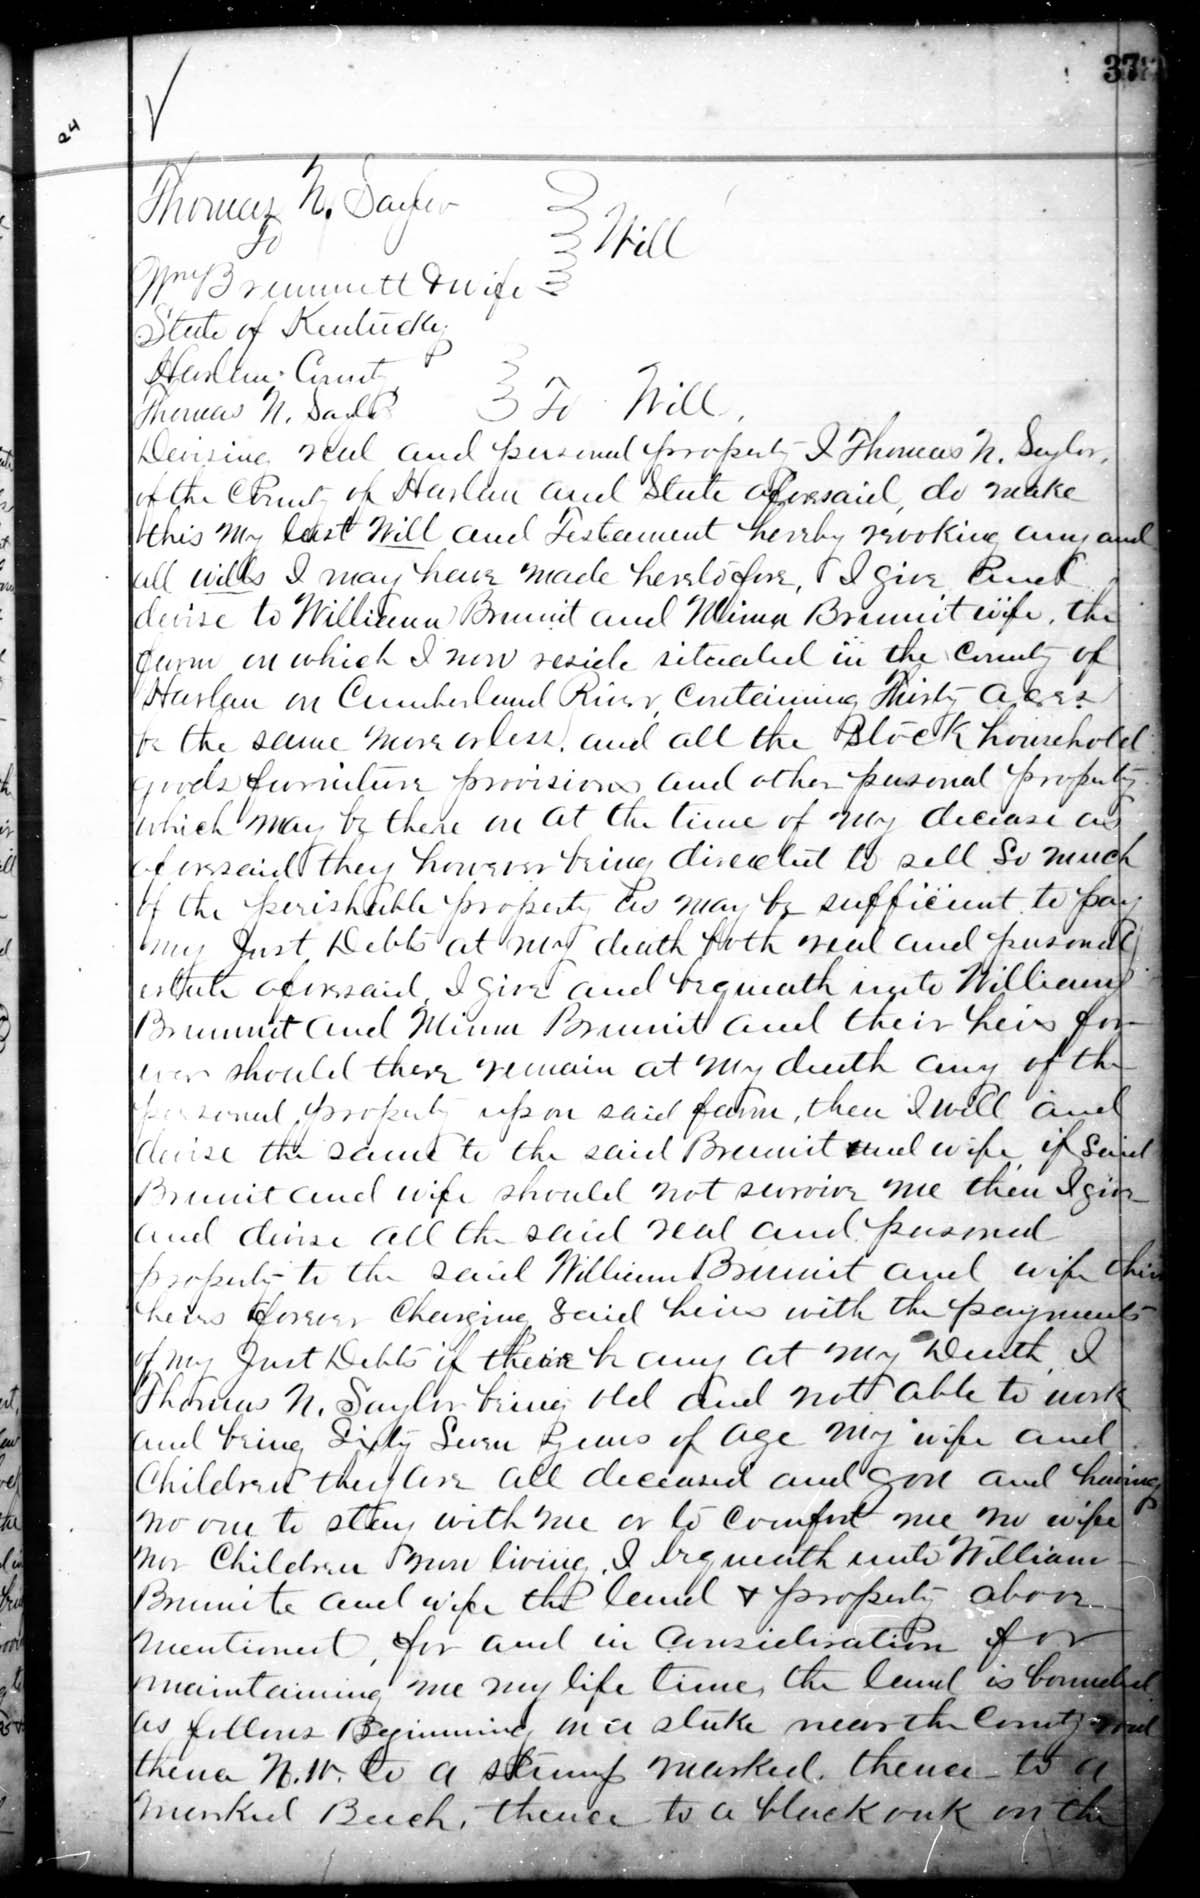 37
24
Thomas N. Saylor
To
Will
Wm Brummett & wife
State of Kentucky
Harlan County
Thomas N. Saylor To Will.
Devising real and personal property I Thomas N. Saylor,
of the County of Harlan and State aforesaid, do make
this my last Will and Testament hereby revoking any and
all wills I may have made heretofore, I give and
devise to William Brumit and Mima Brumit wife, the
farm on which I now reside situated in the County of
Harlan on Cumberland River, containing Thirty acres
be the same more or less, and all the Stock household
goods furniture provisions and other pusonal property
which may be there on at the time of my decease as
aforesaid they however being directed to sell So much
of the perishable property as may be sufficient to pay
my Just Debts at my death both real and pusonal
estate aforesaid, I give and bequeath unto William
Brumit and Mima Brumit and their heirs for
ever should there remain at my death any of the
personal property upon said farm, then I will and
devise the same to the said Brumit and wife, if Said
Brumit and wife should not survive me then I give
and devise all the said real and pusonal
property to the said William Brumit and wife their
heirs forever Charging Said heirs with the payments
of my Just Debts if their be any at my Death, I
Thomas N. Saylor being old and not able to work
and being Sixty Seven years of age my wife and
Children they are all deceased and gon and having
no one to stay with me or to comfort me no wife
nor Children now living, I bequeath unto William
Brumite and wife the land & property above
mentioned, for and in Consideration for
maintaining me my life time, the land is bounded
as follows Beginning on a stake near the County road
thence N.W. to a stump marked, thence to a
marked Beech, thence to a black oak on the